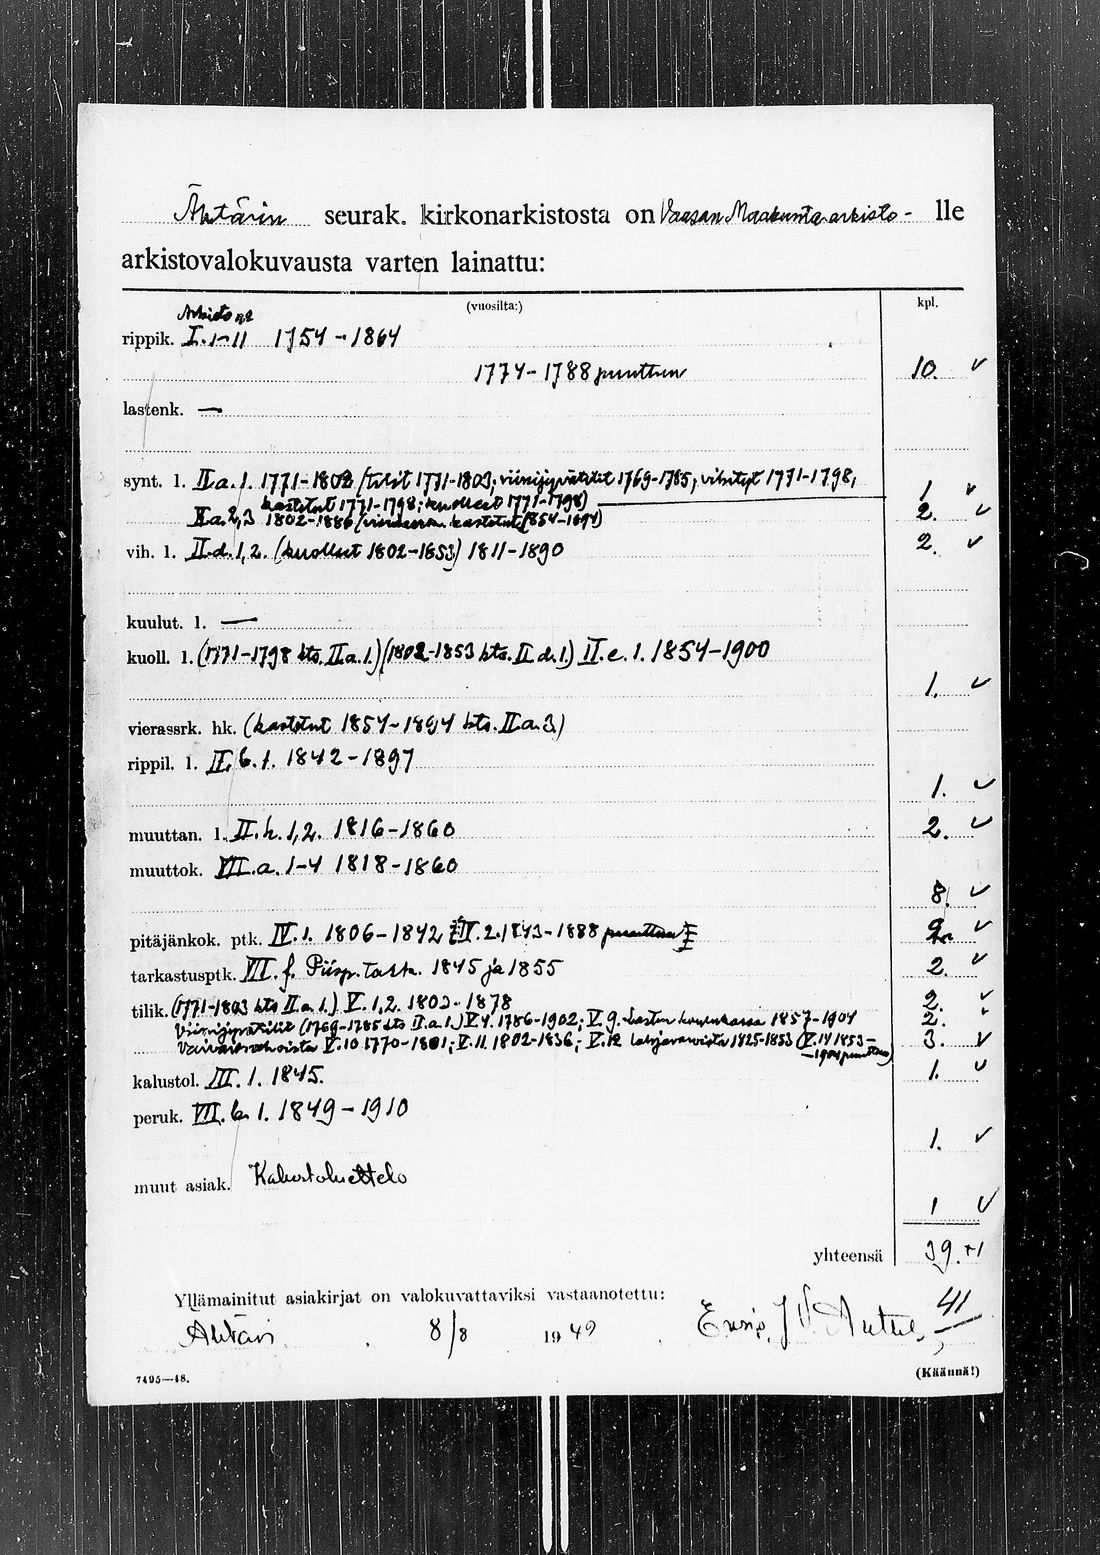 Ähtärin seurak. kirkonarkistosta on Vaasan Maakunta-arkisto- lle
arkistovalokuvausta varten lainattu:
(vuosilta:) kpl.
Arkisto n:o
rippik. I. 1-11 1754-1864
1774-1788 puuttuu 10. ✓
lastenk. —
synt. l. II a. 1. 1771-1802 (tilit 1771-1803; viinijyvätilit 1769-1785; vihityt 1771-1798,
kastetut 1771-1798; kuolleet 1771-1798) 1 ✓
II a. 2, 3 1802-1886 (vierassrk. kastetut 1854-1894) 2. ✓
vih. l. II. d. 1, 2. (kuolleet 1802-1853) 1811-1890 2. ✓
kuulut. l. —
kuoll. l. (1771-1798 kts. II a. 1.) (1802-1853 kts. II d. 1.) II. e. 1. 1854-1900
1. ✓
vierassrk. hk. (kastetut 1854-1894 kts. II a. 3.)
rippil. l. II. b. 1. 1842-1897
1. ✓
muuttan. l. II. h. 1, 2. 1816-1860 2. ✓
muuttok. VII. a. 1-4 1818-1860
8. ✓
pitäjänkok. ptk. IV. 1. 1806-1842 IV. 2. 1843-1888 puuttuu 2. ✓
tarkastusptk. VII. f. Piisp. tark. 1845 ja 1855 2. ✓
tilik. (1771-1803 kts II. a. 1.) V. 1, 2. 1803-1878 2. ✓
Viinijyvätilit (1769-1785 kts II. a. 1.) V. 4. 1786-1902; V. 9. Lasten koulukassa 1857-1904 2. ✓
Vaivaisrahoista V. 10 1770-1801; V. 11. 1802-1836; V. 12 1825-1853 (V. 14 1853- 3. ✓
-1904 puuttuu)
kalustol. III. 1. 1845. 1. ✓
peruk. VII. b. 1. 1849-1910
1. ✓
muut asiak. Kalustoluettelo
1 ✓
yhteensä 39. +1
Yllämainitut asiakirjat on valokuvattaviksi vastaanotettu: 41
Ähtäri 8/8 1949
7495—48. (Käännä!)